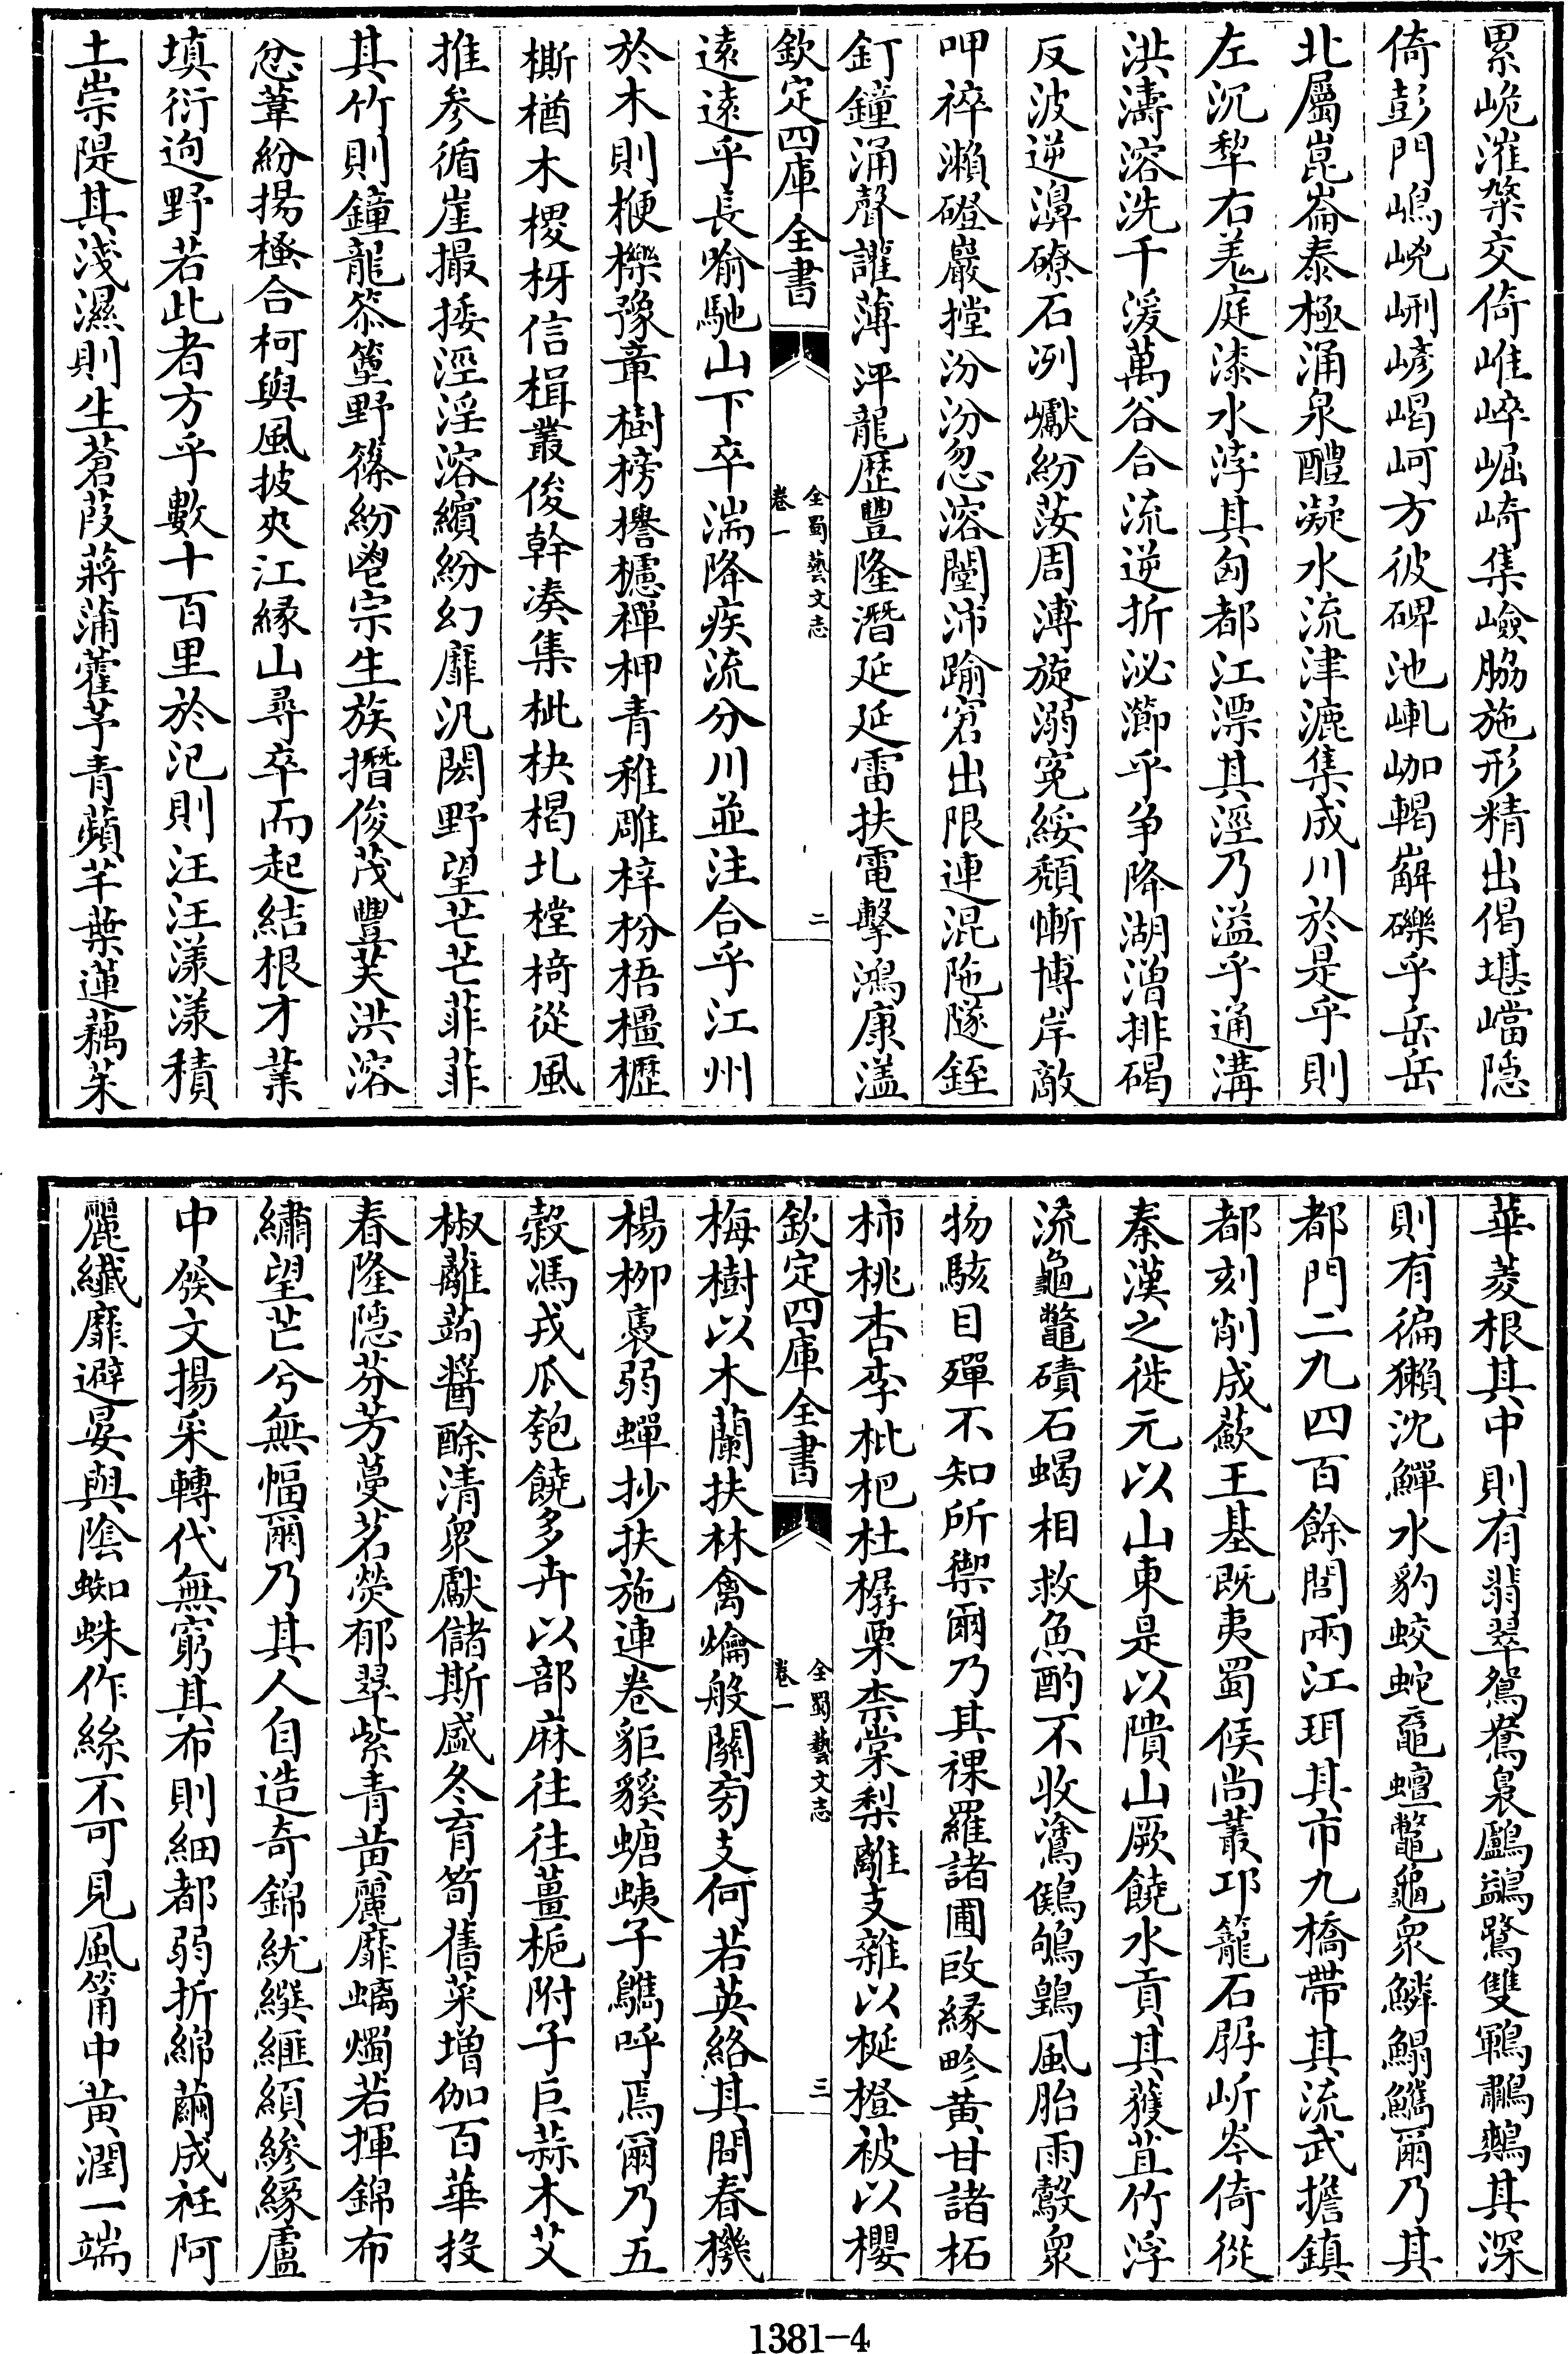 累峗漼粲交倚嶉崪崛崎集嶮脇施形精出偈堪㠥隠
倚彭門嶋㟅峢㟞嵑岢方彼碑池𡸣㟎輵嶰礫乎岳岳
北屬崑崙泰極涌泉醴凝水流津漉集成川於是乎則
左沉犂右羗庭漆水浡其匈都江漂其涇乃溢乎通溝
洪濤溶洗千湲萬谷合流逆折泌㴉乎争降湖漕排碣
反波逆濞磙石冽巘紛茷周溥旋溺冤綏頽慚博岸敵
呷稡瀨磴巖摚汾汾忽溶闛沛踰窘出限連混陁隧銍
釘鐘涌聲讙薄泙龍歴豐隆潛延延雷扶電擊鴻康濭
欽定四庫全書
全蜀藝文志
卷一
二
遠遠乎長喻馳山下卒湍降疾流分川並注合乎江州
於木則楩櫟豫章樹榜櫏櫖樿柙青稚雕梓枌梧橿櫪
㯕楢木㮨枒信楫叢俊幹凑集枇柍楬北樘椅從風
推参循崖撮捼涇淫溶繽紛幻靡汎閎野望芒芒菲菲
其竹則鐘龍䇔䈄野篠紛鬯宗生族攢俊茂豐美洪溶
忿葦紛揚橾合柯與風披夾江緣山尋卒而起結根才業
填衍逈野若此者方乎數十百里於汜則汪汪漾漾積
土崇隄其淺濕則生蒼葭蔣蒲藿芋青蘋芊葉蓮藕茱
華菱根其中則有翡翠鴛鴦裊鸕鷁鷺雙鶤鷫鷞其深
則有猵獺沈鱓水豹蛟蛇黿蟺鼈龜衆鱗鰨䲛爾乃其
都門二九四百餘閭兩江珥其市九橋帶其流武擔鎮
都刻削成蘞王基既夷蜀侯尚叢邛籠石㟓岓岑倚從
秦漢之徙元以山東是以隤山厥饒水貢其獲苴竹浮
流龜鼈磧石蝎相救魚酌不收鴻鶴鴝鷍風胎雨鷇衆
物駭目殫不知所禦爾乃其裸羅諸圃𣢾縁畛黄甘諸柘
柿桃杏李枇杷杜樼栗柰棠梨離支雜以梴橙被以櫻
梅樹以木蘭扶林禽爚般關旁支何若英絡其間春機
楊栁裊弱蟬抄扶施連卷䝙豯螗蛦子鷓呼焉爾乃五
穀馮戎瓜匏饒多卉以部麻往往薑梔附子巨蒜木艾
椒蘺蒟醬酴清衆獻儲斯盛冬育筍舊菜增伽百華投
春隆隠芬芳蔓茗熒郁翠紫青黄麗靡螭燭若揮錦布
繡望芒兮無幅爾乃其人自造奇錦紌繏䋿縜縿緣盧
中發文揚采轉代無窮其布則細都弱折綿繭成衽阿
麗纖靡避晏與陰蜘蛛作絲不可見風筩中黄潤一端
欽定四庫全書
全蜀藝文志
卷一
三
1381-4